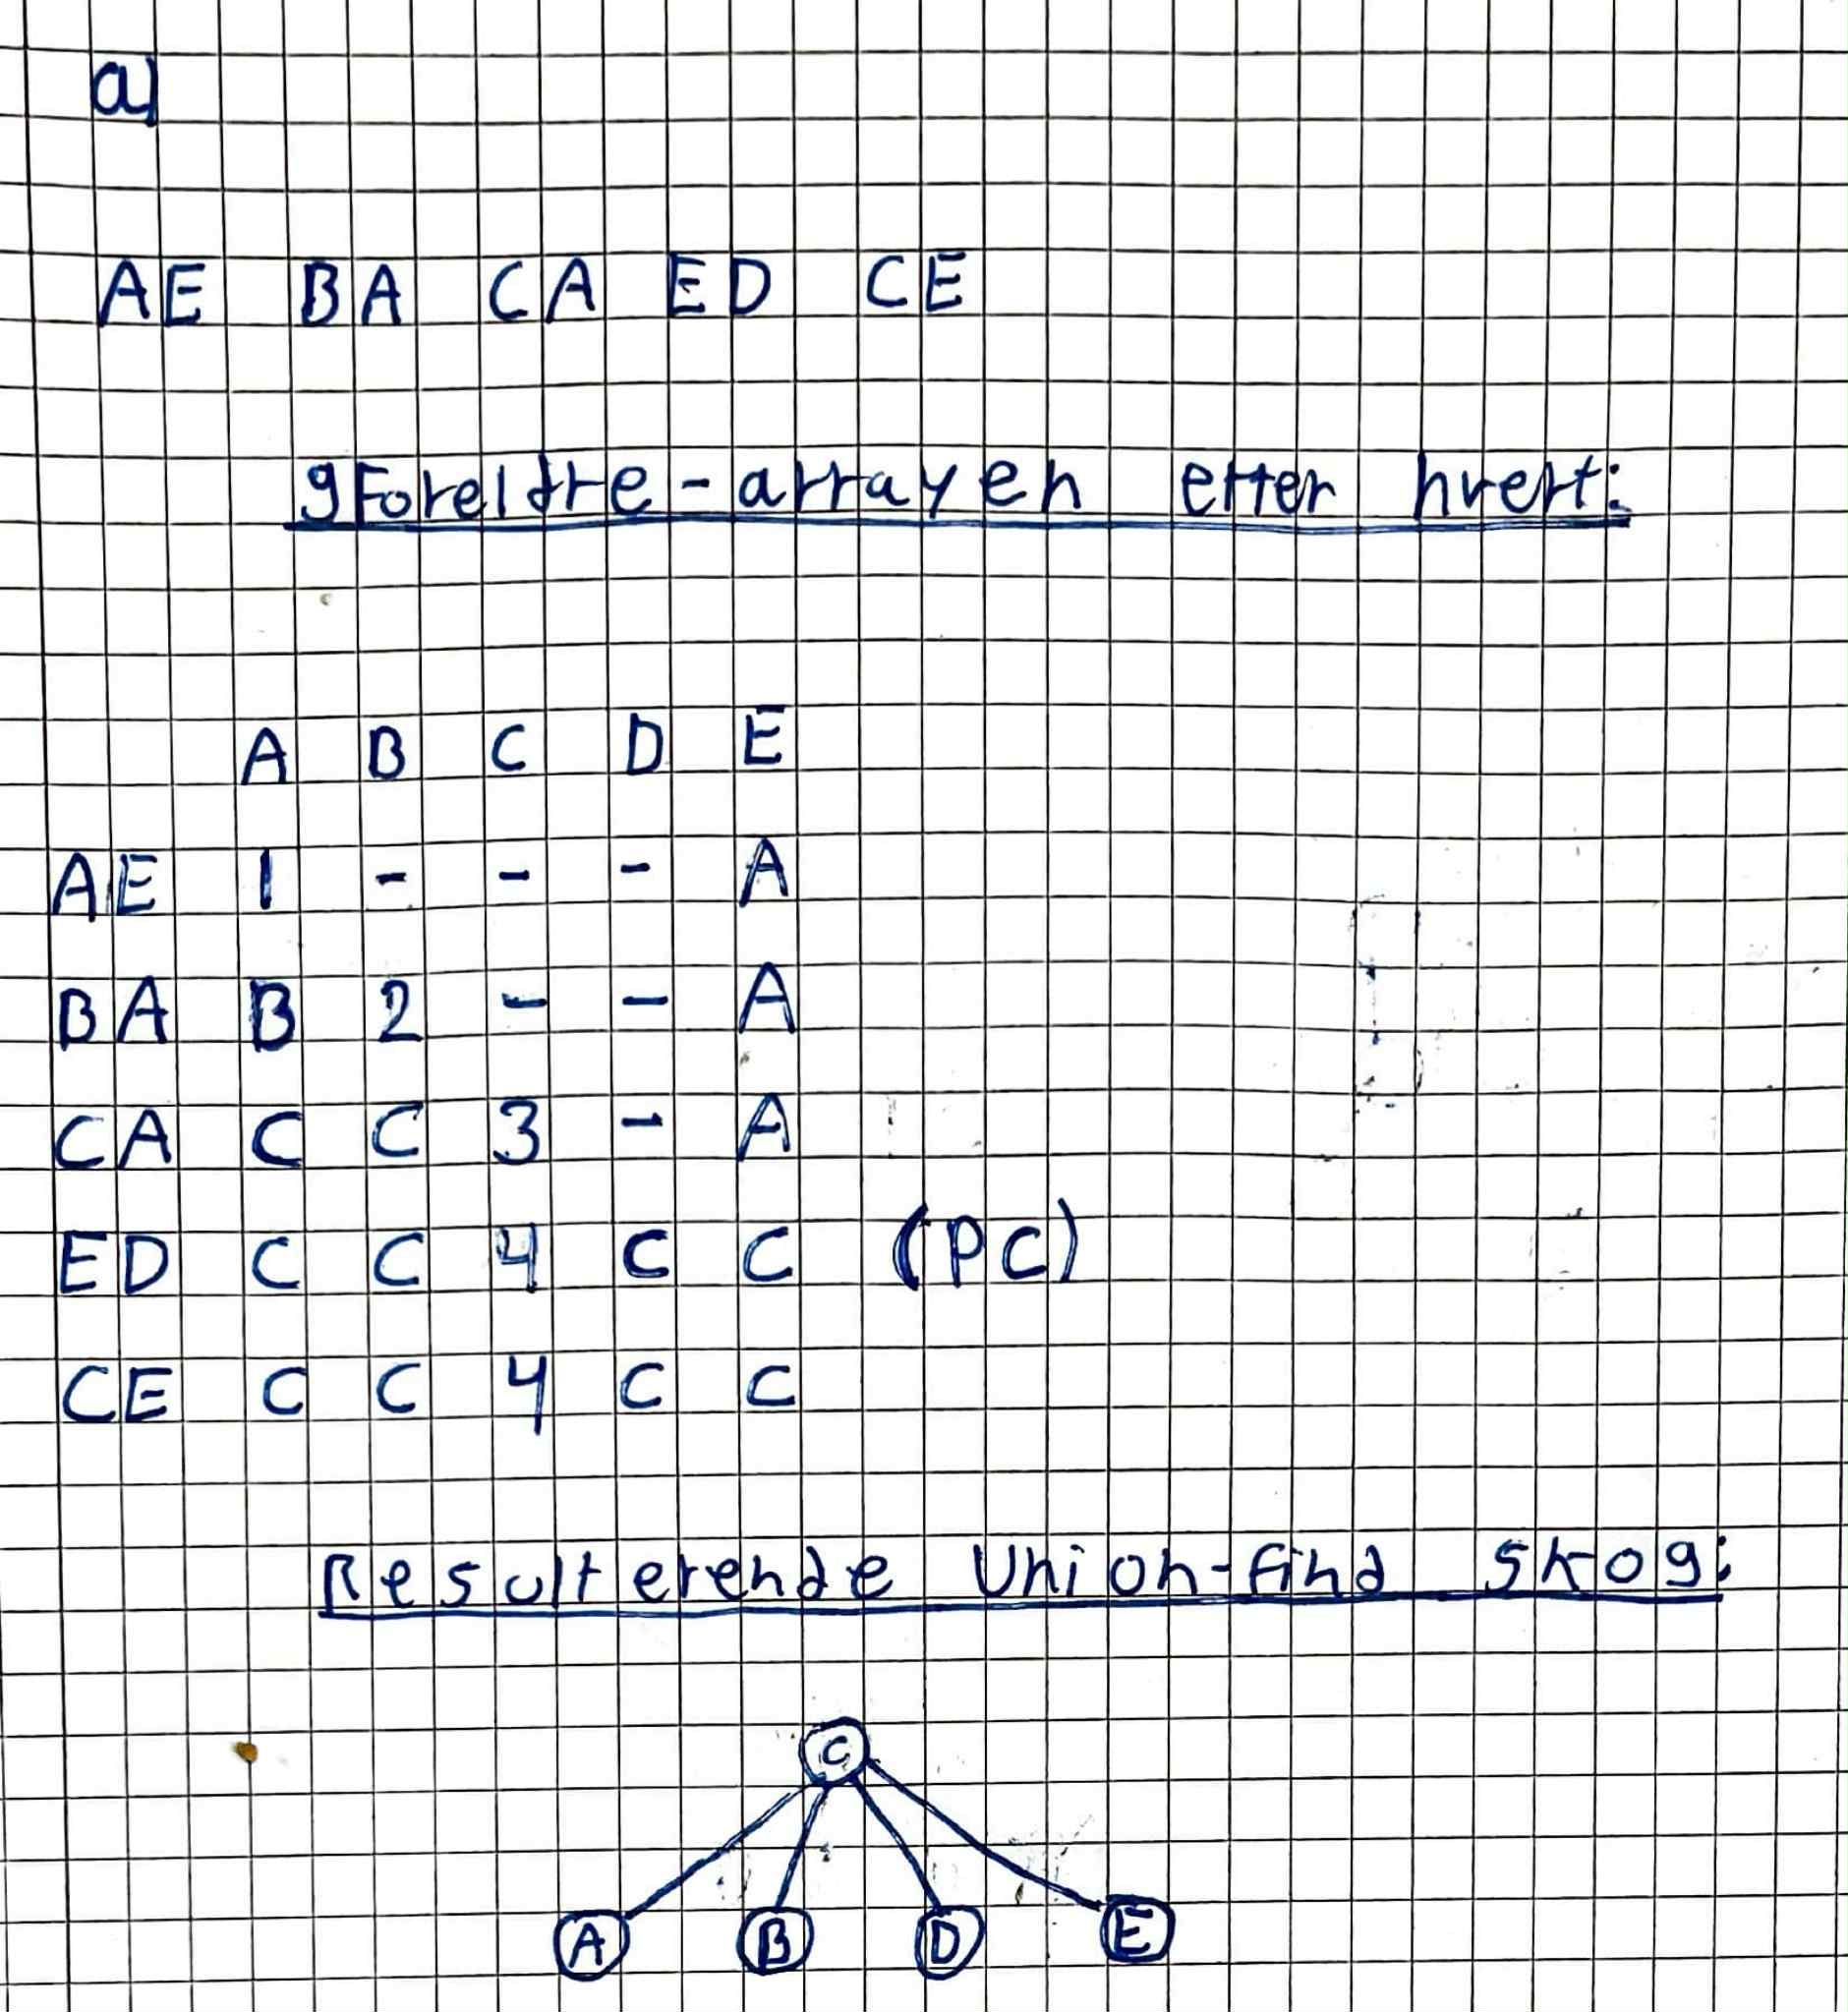 a)
AE BA CA ED CE
gForeldre-arrayen etter hvert:
A B C D E
AE 1 - - - A
BA B 2 - - A
CA C C 3 - A
ED C C 4 C C (PC)
CE C C 4 C C
Resulterende Union-find skog:
C
A B D E